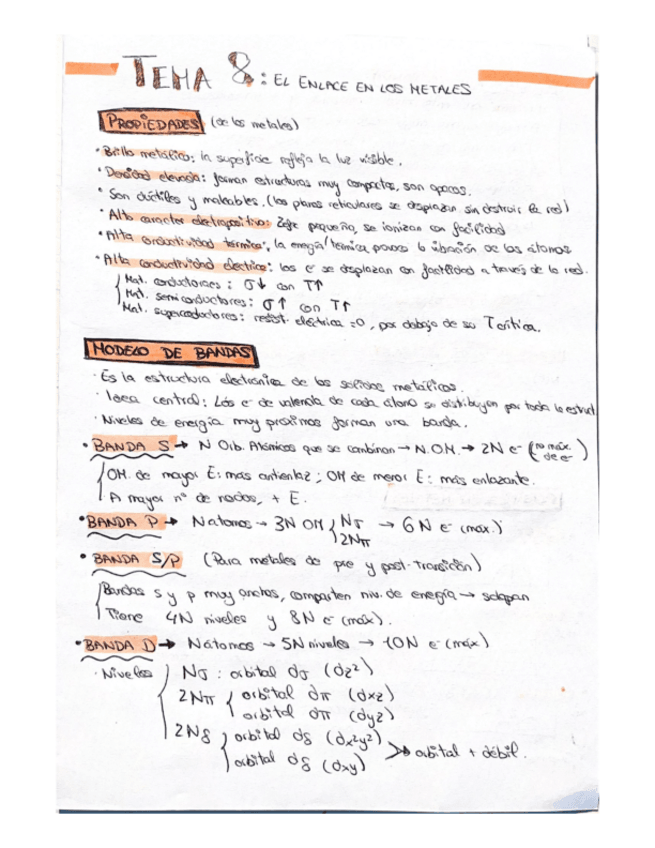 TEMA 8: EL ENLACE EN LOS METALES
PROPIEDADES (de los metales)
· Brillo metálico: la superficie refleja la luz visible.
· Densidad elevada: forman estructuras muy compactas, son opacos.
· Son dúctiles y maleables. (los planos reticulares se desplazan sin destruir la red)
· Alto caracter electropositivo: Zefe pequeña, se ionizan con facilidad
· Alta conductividad térmica: la energía térmica la de los átomos
· Alta conductividad eléctrica: los e⁻ se desplazan con facilidad a través de la red.
Mat. conductores: σ↓ con T↑
Mat. semiconductores: σ↑ con T↑
Mat. superconductores: resist. eléctrica =0, por debajo de su Tcrítica.
MODELO DE BANDAS
· Es la estructura electrónica de los sólidos metálicos.
· Idea central: Los e⁻ de valencia de cada átomo se distribuyen por toda la estruct.
· Niveles de energía muy próximos forman una banda.
· BANDA S → N Orb. Atómicos que se combinan → N.O.M. → 2N e⁻ (nº máx. de e⁻)
OM. de mayor E: más antienlaz; OM de menor E: más enlazante.
A mayor nº de nodos, + E.
· BANDA P → N átomos → 3N OM { Nσ 2Nπ → 6N e⁻ (máx.)
· BANDA S/P (Para metales de pre y post-transición)
Bandas s y p muy anchas, comparten niv. de energía → solapan
Tiene 4N niveles y 8N e⁻ (máx).
· BANDA D → N átomos → 5N niveles → 10N e⁻ (máx)
· Niveles Nσ: orbital dσ (dz²)
2Nπ { orbital dπ (dxz)
orbital dπ (dyz)
2Nδ orbital dδ (dx²y²)
orbital dδ (dxy) → orbital + débil.